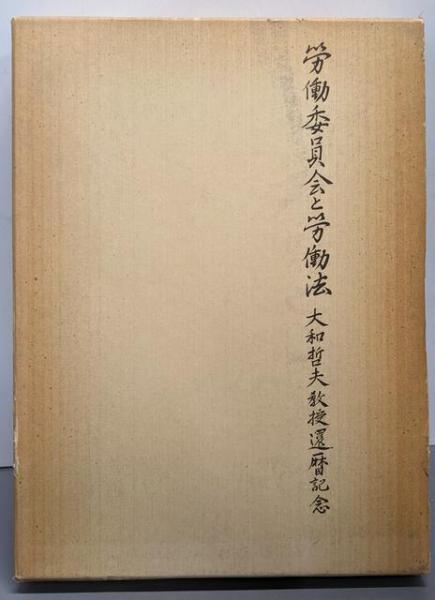 労働委員会と労働法 大和哲夫教授還暦記念